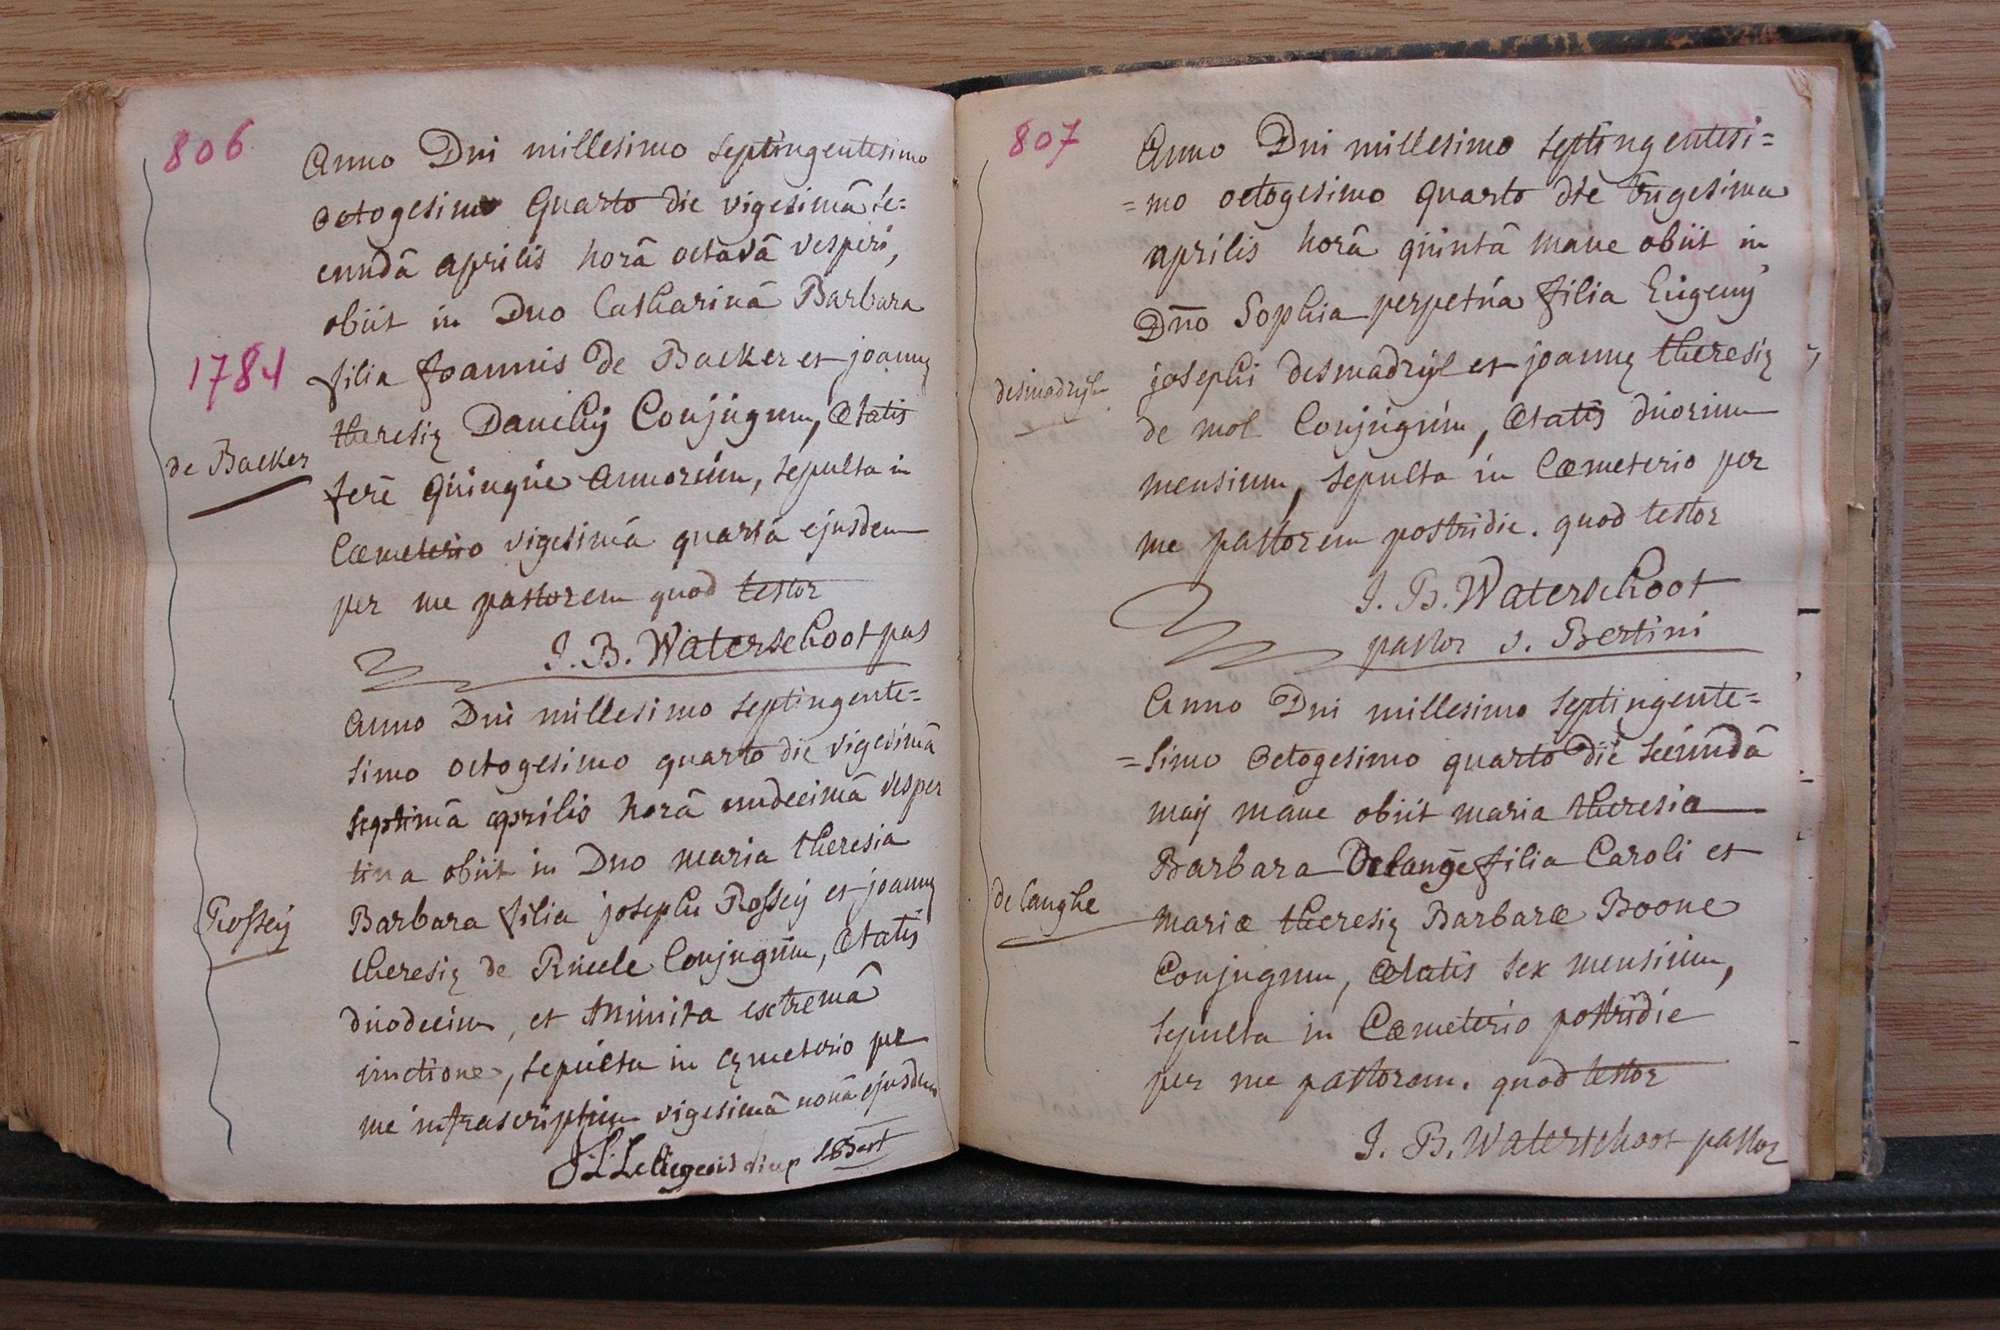 806
Anno Dni millesimo septingentesimo
octogesimo quarto die vigesimâ se=
cundâ aprilis horâ octavâ vesperi,
obiit in Dno Catharinâ Barbara
filia Joannis de Backer et joannę
1784
theresię Conjugum, ætatis
de Backer
ferè quinque annorum, sepulta in
Cæmeterio vigesimâ quartâ ejusdem
per me pastorem quod testor
J. B. Waterschoot pas
Anno Dni millesimo septingente=
simo octogesimo quarto die vigesimâ
septimâ aprilis horâ undecimâ vesper
tina obiit in Dno maria theresia
Barbara filia josephi Rossey et joannę
Rossey
theresię de Conjugum, ætatis
duodecim, et munita extremâ
unctione, sepulta in cęmeterio per
me infrascriptum vigesimâ nonâ ejusdem
807
Anno Dni millesimo septingentesi=
=mo octogesimo quarto die trigesima
aprilis horâ quintâ mane obiit in
Dño Sophia perpetua filia Eugenij
josephi desmadryl et joannę theresię
desmadryl
de mol Conjugum, ætatis duorum
mensium, sepulta in Cæmeterio per
me pastorem postridie. quod testor
J. B. Waterschoot
pastor s. Bertini
Anno Dni millesimo septingente=
=simo octogesimo quarto die secundâ
maij mane obiit maria theresia
Barbara Delange filia Caroli et
de langhe
mariæ theresię Barbaræ Boone
Conjugum, ætatis sex mensium,
sepulta in Cæmeterio postridie
per me pastorem. quod testor
J. B. Waterschoot pastor